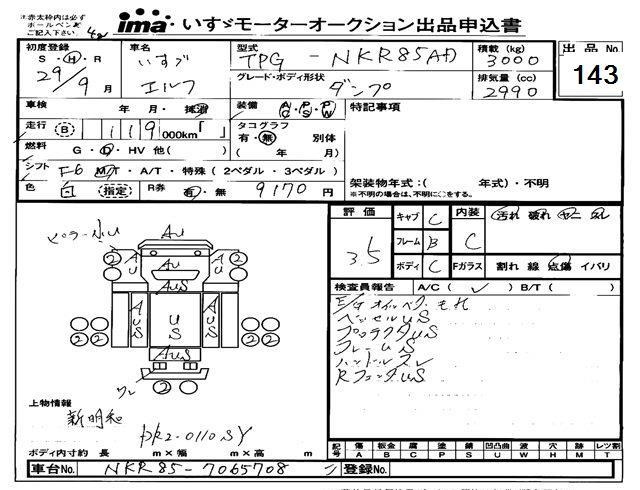 ※赤太枠内は必ず
ボールペンで
ご記入下さい
ima いすゞモーターオークション出品申込書
初度登録 S・H・R 29/9 月
車名 いすゞ エルフ
型式 TPG - NKR85AD
積載 (kg) 3000
出品 No. 143
グレード・ボディ形状 ダンプ
排気量 (cc) 2990
車検 年 月・抹消
装備 AC・PS・PW
特記事項
走行 B 119 000km
タコグラフ 有・無 別体
( 年 月)
燃料 G・D・HV 他( )
シフト F6 M/T・A/T・特殊 (2ペダル・3ペダル)
架装物年式:( 年式)・不明
※不明の場合は、不明に○をする。
色 白 (指定) R券 有・無 9170 円
評価 3.5
キャブ C
内装 C
汚れ 破れ コゲ スレ
フレーム B
ボディ C
Fガラス 割れ 線 点傷 イバリ
検査員報告 A/C( ✓ ) B/T( )
E/G オイルペク モレ
ベッセルUS
プロテクタUS
フレームUS
ハンドルスレ
RフェンダUS
ピラー小U
AU
2 AU U 2
AUS
AUS US AUS
2 2
AUS
ワレ
2
上物情報
新明和
DR2-0110SY
ボディ内寸約 長 m×幅 m×高 m
記号 傷 板金 腐 塗 錆 凹凸曲 波 穴 跡 レツ割
A B C P S U W H M T
車台No. NKR85-7065708
登録No.